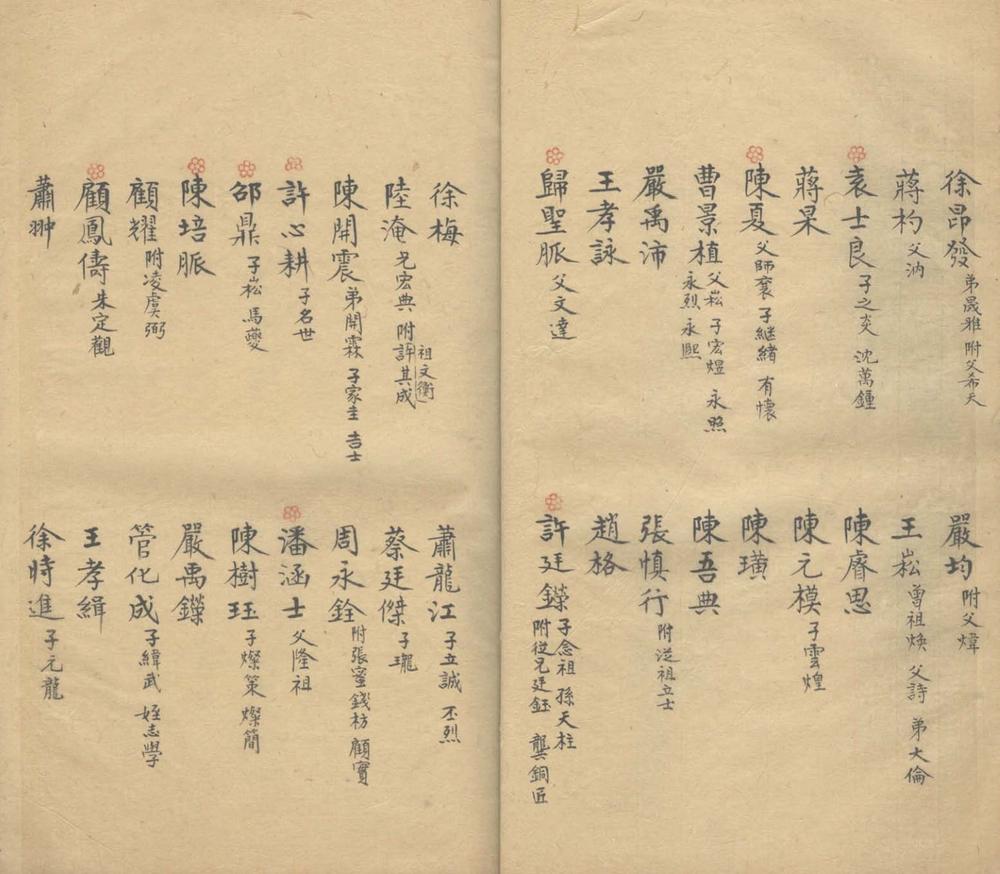 徐昂發 弟晟雅 附父希夭 嚴均 附父煒
蔣杓 父汭 王崧 曾祖煥 父詩 弟大倫
袁士良 子之炎 沈萬鍾 陳睿思
蔣杲 陳元模 子雲煌
陳夏 父師裦 子継緒 有懷 陳璜
曹景植 父崧 子宏煜 永照 永烈 永熙 陳吾典
嚴禹沛 張慎行 附從祖立士
王孝詠 趙格
歸聖脈 父文達 許廷鑅 子念祖 孫天柱 附從兄廷鈺 龔銅匠
徐梅 蕭龍江 子立誠 丕烈
陸淹 兄宏典 附許其成 祖文衡 蔡廷傑 子瓏
陳開震 弟開霖 子家圭 吉士 周永銓 附張蜜 錢枋 顧實
許心耕 子名世 潘涵士 父隆祖
邵鼎 子崧 馬夔 陳樹珏 子燦策 燦簡
陳培脈 嚴禹鑅
顧耀 附凌虞弼 管化成 子緯武 姪志學
顧鳳儔 朱定觀 王孝緝
蕭翀 徐時進 子元龍